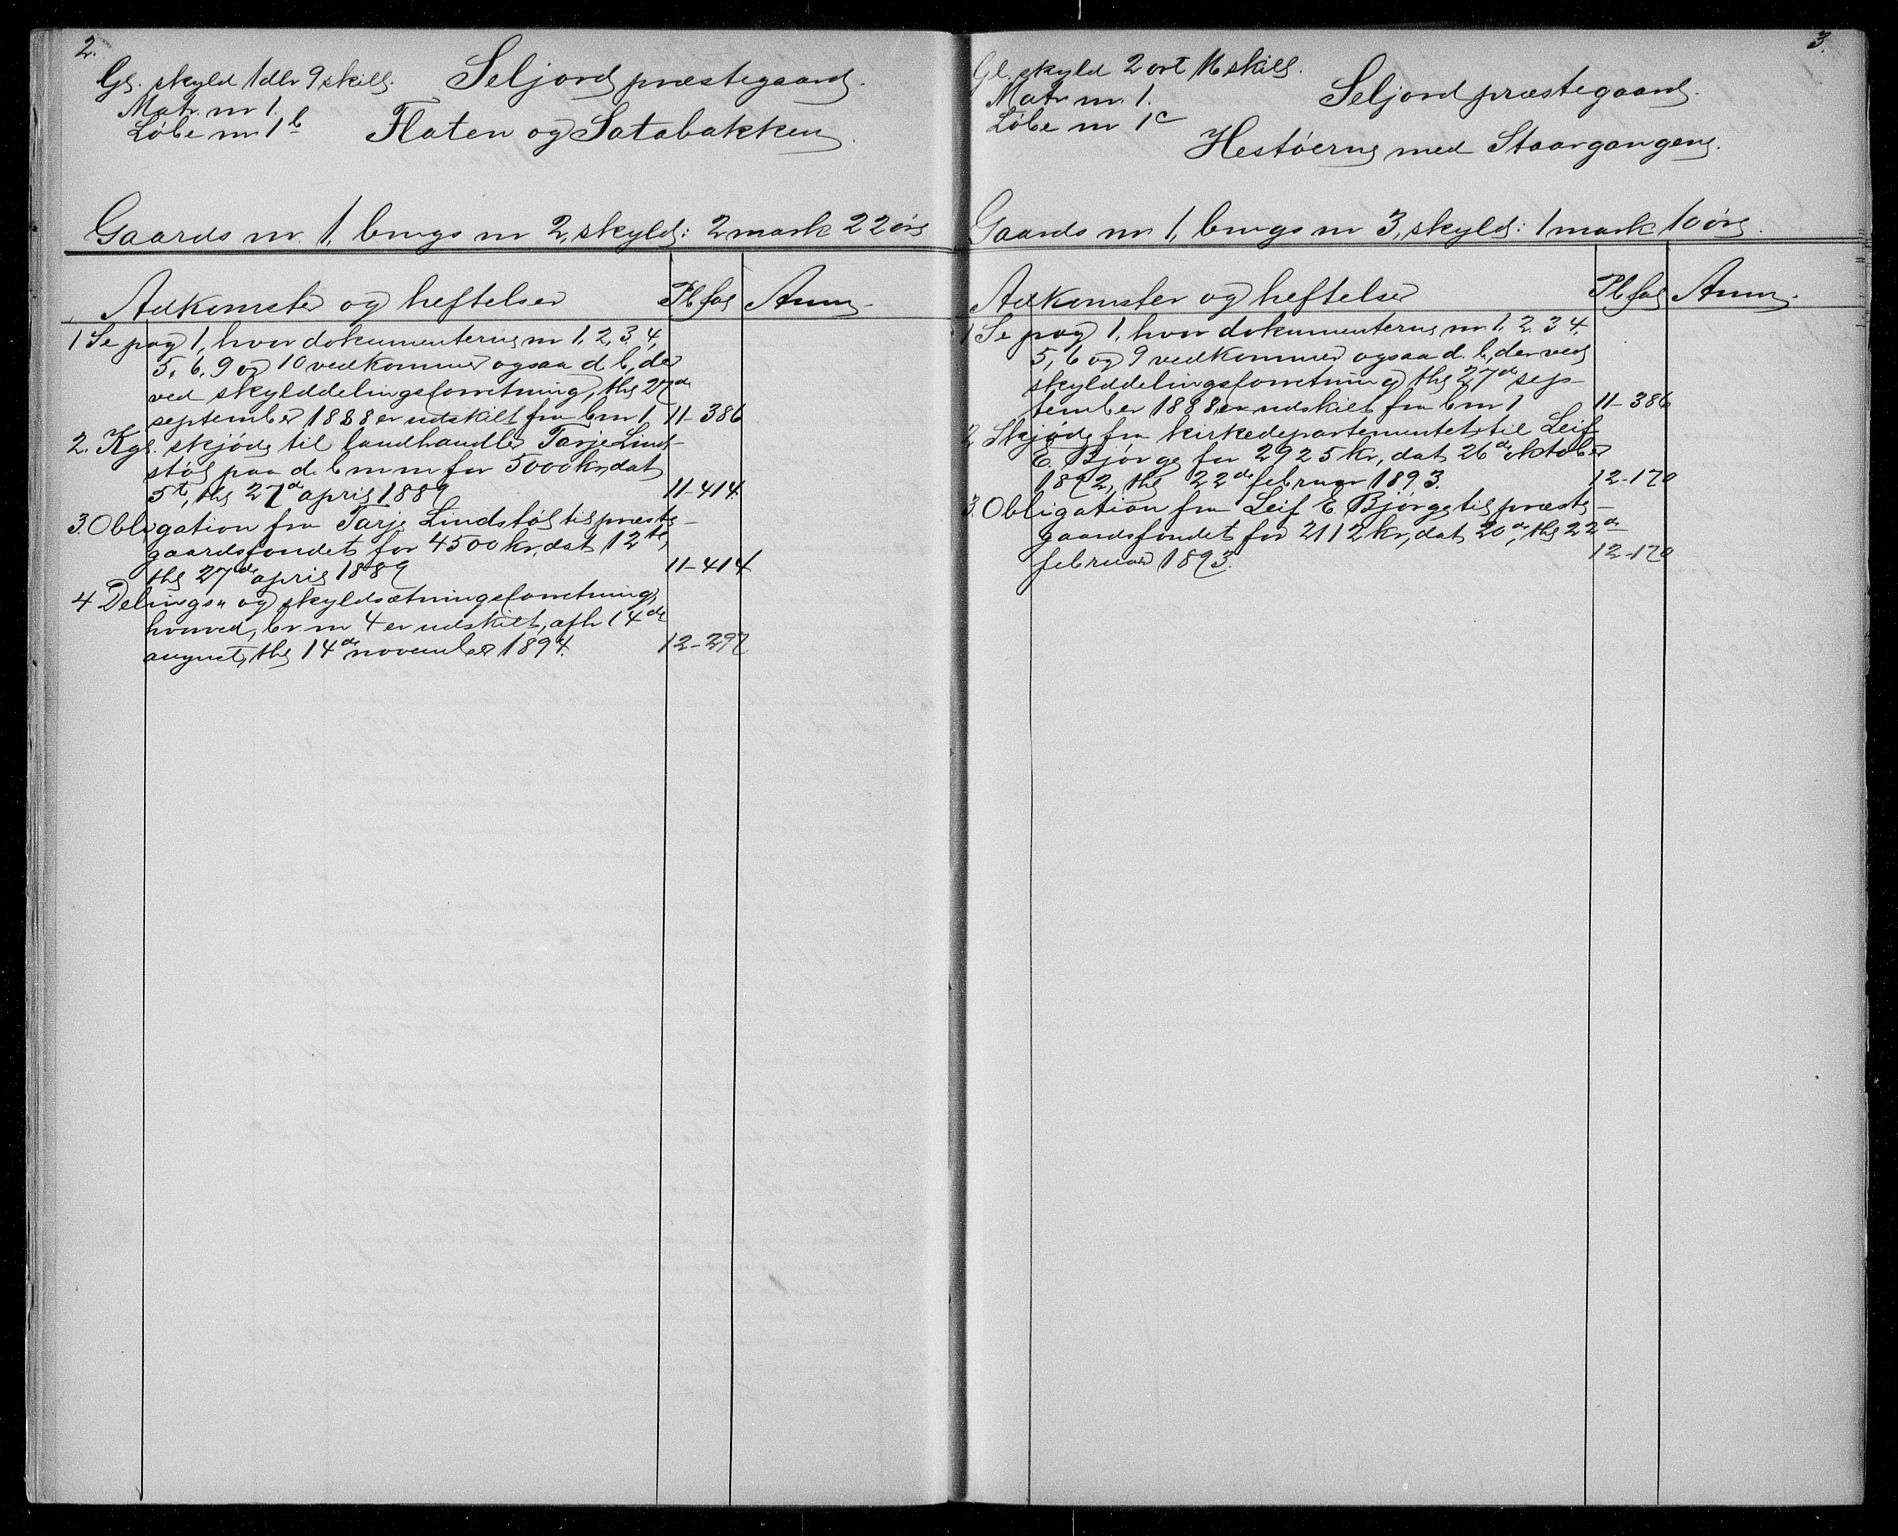 2.
Gl. skyld 1 dlr 9 skill. Seljord præstegaard.
Matr. nr 1.
Løbe nr 1 b Flaten og Satabakken.
Gaards nr. 1, brugs nr 2, skyld: 2 mark 22 øre
Adkomster og heftelser Pb fol Anm.
1 Se pag 1, hvor dokumenterne nr 1, 2, 3, 4,
5, 6, 9 og 10 vedkommer ogsaa d. b, der
ved skylddelingsforretning, thl 27de
september 1888 er udskilt fra b nr 1 11-386
2. Kgl. skjøde til landhandler Tarje Lind-
støl paa d. b m m for 5000 kr, dat
5t, thl 27de april 1889 11-414
3. Obligation fra Tarje Lindstøl til præste-
gaardsfondet for 4500 kr, dat 12te,
thl 27de april 1889 11-414
4 Delings- og skyldsætningsforretning,
hvorved, br nr 4 er udskilt, afh 14de
august, thl 14de november 1894. 12-297
3.
Gl. skyld 2 ort 16 skill.
Matr nr 1. Seljord præstegaard.
Løbe nr 1 c
Hestøerne med Staargangen.
Gaards nr 1, brugs nr 3, skyld: 1 mark 10 øre.
Adkomster og heftelser Pb fol Anm.
1 Se pag 1, hvor dokumenterne nr 1. 2. 3 4.
5, 6 og 9 vedkommer ogsaa d. b, der ved
skylddelingsforretning thl 27de sep-
tember 1888 er udskilt fra b nr 1 11-386
2 Skjøde fra kirkedepartementet til Leif
E. Bjørge for 2925 kr, dat 26de oktober
1892, thl 22de februar 1893. 12-170
3. Obligation fra Leif E Bjørge til præste-
gaardsfondet for 2112 kr, dat 20de, thl 22de
februar 1893. 12-170